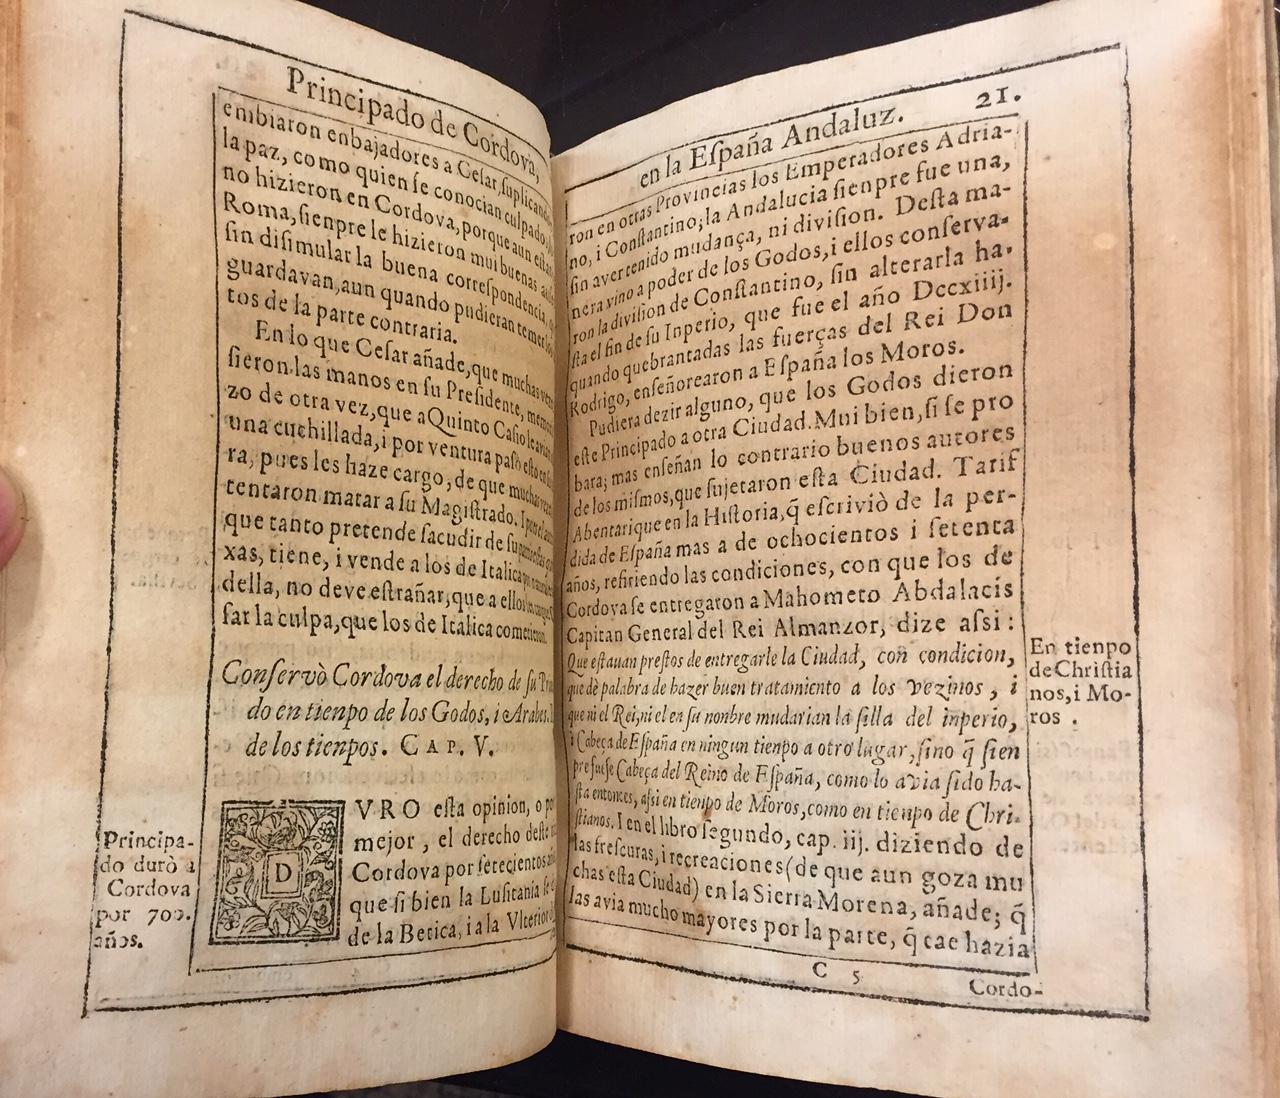 Principado de Cordova,
embiaron enbajadores a Cesar, suplicando
la paz, como quien se conocian culpado
no hizieron en Cordova, porque aun estan
Roma, sienpre le hizieron mui buenas
sin disimular la buena correspondencia,
guardavan, aun quando pudieran temer los
tos de la parte contraria.
En lo que Cesar añade, que muchas vezes
sieron las manos en su Presidente, memo
zo de otra vez, que a Quinto Casio le
una cuchillada, i por ventura pasò esto en
ra, pues les haze cargo, de que muchas vezes
tentaron matar a su Magistrado. I
que tanto pretende sacudir de su
xas, tiene, i vende a los de Italica
della, no deve estrañar, que a ellos
sar la culpa, que los de Italica cometieron.
Conservò Cordova el derecho de su Prin
do en tienpo de los Godos, i Arabes.
de los tienpos. CAP. V.
DVRO esta opinion, o por
mejor, el derecho deste
Cordova por setecientos
que si bien la Lusitania se
de la Betica, i a la Vlterior
Principa-
do durò a
Cordova
por 700.
años.
en la España Andaluz. 21.
ron en otras Provincias los Emperadores Adria-
no, i Constantino; la Andalucia sienpre fue una,
sin aver tenido mudança, ni division. Desta ma-
nera vino a poder de los Godos, i ellos conserva-
ron la division de Constantino, sin alterarla ha-
sta el fin de su Inperio, que fue el año Dccxiiij.
quando quebrantadas las fuerças del Rei Don
Rodrigo, enseñorearon a España los Moros.
Pudiera dezir alguno, que los Godos dieron
este Principado a otra Ciudad. Mui bien, si se pro
bara; mas enseñan lo contrario buenos autores
de los mismos, que sujetaron esta Ciudad. Tarif
Abentarique en la Historia, q̃ escriviò de la per-
dida de España mas a de ochocientos i setenta
años, refiriendo las condiciones, con que los de
Cordova se entregaron a Mahometo Abdalacis
Capitan General del Rei Almanzor, dize assi:
Que estauan prestos de entregarle la Ciudad, con condicion,
que dè palabra de hazer buen tratamiento a los vezinos, i
que ni el Rei, ni el en su nonbre mudarian la silla del inperio,
i Cabeça de España en ningun tienpo a otro lugar, sino q̃ sien
pre fuese Cabeça del Reino de España, como lo avia sido ha-
sta entonces, assi en tienpo de Moros, como en tienpo de Chri-
stianos. I en el libro segundo, cap. iij. diziendo de
las frescuras, i recreaciones (de que aun goza mu
chas esta Ciudad) en la Sierra Morena, añade; q̃
las avia mucho mayores por la parte, q̃ cae hazia
En tienpo
de Christia
nos, i Mo-
ros.
C 5
Cordo-